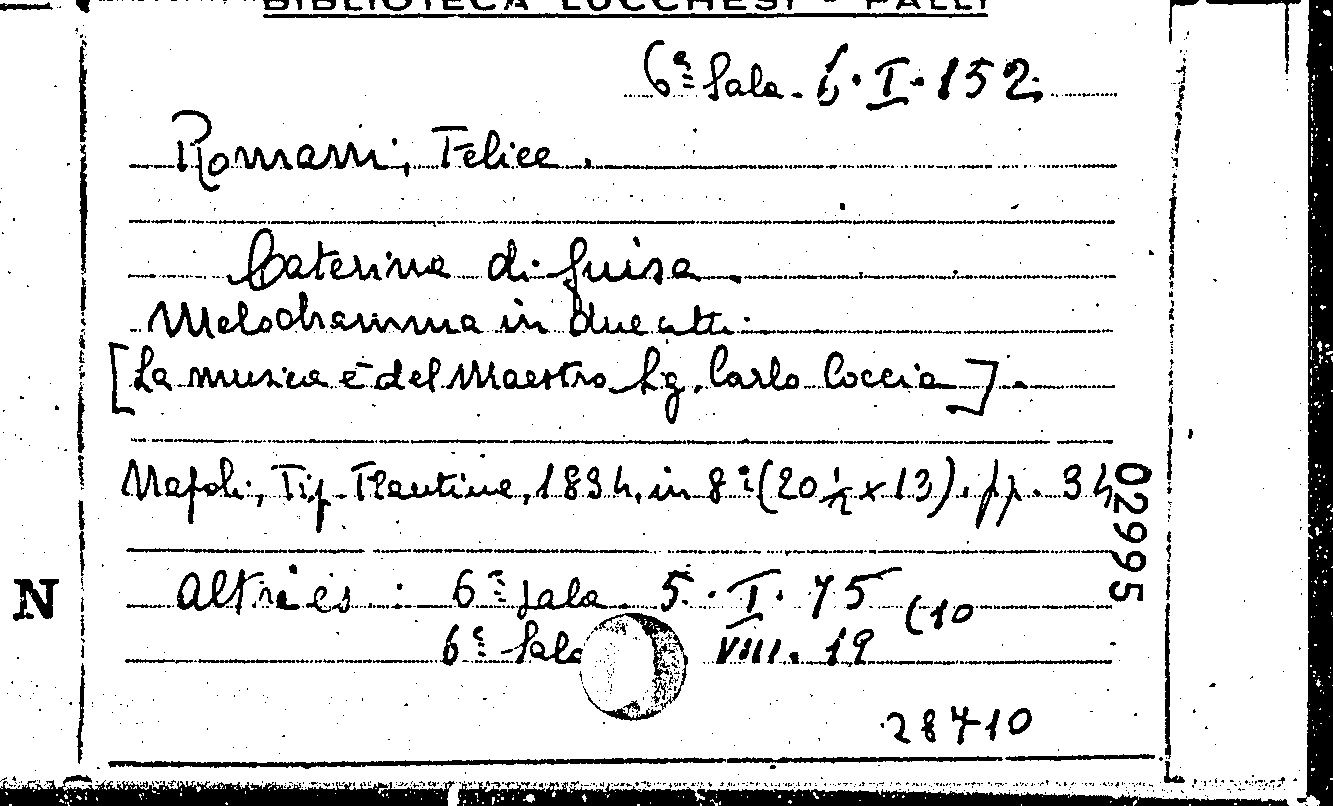 BIBLIOTECA LUCCHESI - PALLI
6ª Sala. 6. I. 152.
Romani, Felice.
Caterina di Guisa.
Melodramma in due atti.
[La musica è del Maestro Sig. Carlo Coccia].
Napoli, Tip. Flautina, 1834, in 8° (20 ½ x 13). pp. 34
02995
N
Altri es. : 6ª Sala. 5. I. 75 (10
6ª Sala VIII. 19
28710